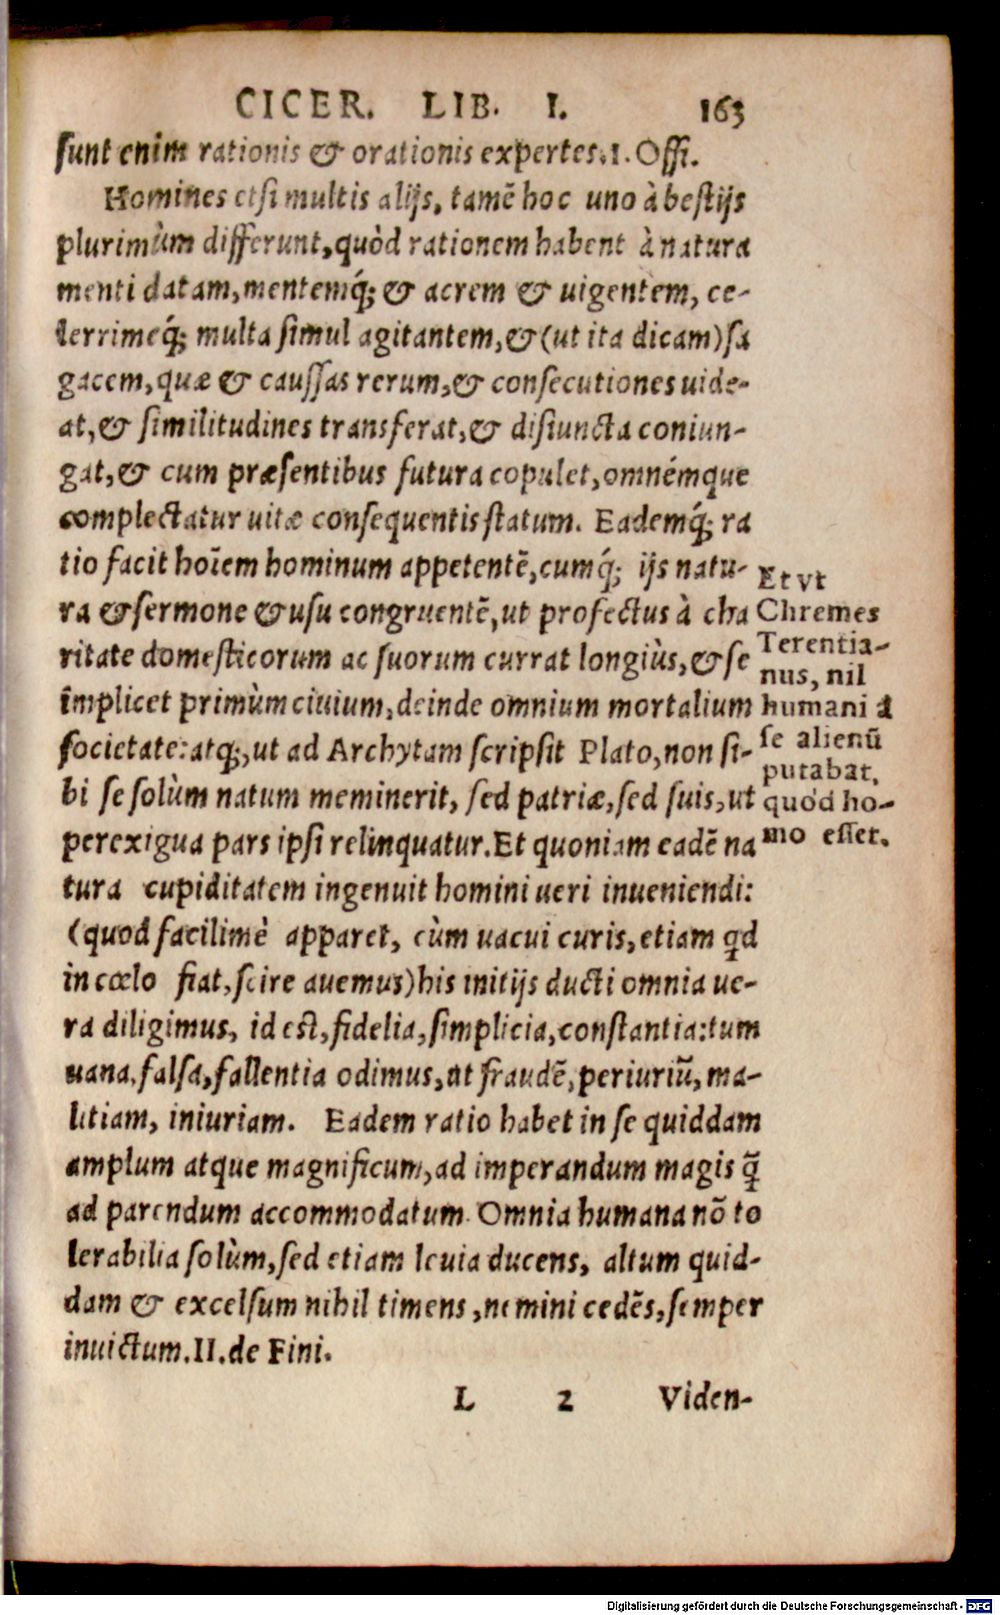 CICER. LIB. I. 163
sunt enim rationis & orationis expertes.1. Offi.
Homines etsi multis alijs, tamē hoc uno à bestijs
plurimùm differunt, quòd rationem habent à natura
menti datam, mentemq́; & acrem & uigentem, ce-
lerrimeq́; multa simul agitantem, & (ut ita dicam) sa
gacem, quæ & caussas rerum, & consecutiones uide-
at, & similitudines transferat, & disiuncta coniun-
gat, & cum præsentibus futura copulet, omnémque
complectatur uitæ consequentis statum. Eademq́; ra
tio facit hoīem hominum appetentē, cumq́; ijs natu-
ra & sermone & usu congruentē, ut profectus à cha
ritate domesticorum ac suorum currat longiùs, & se
implicet primùm ciuium, deinde omnium mortalium
societate: atq;, ut ad Archytam scripsit Plato, non si-
bi se solùm natum meminerit, sed patriæ, sed suis, ut
perexigua pars ipsi relinquatur. Et quoniam eadē na
tura cupiditatem ingenuit homini ueri inueniendi:
(quod facilimè apparet, cùm uacui curis, etiam qd
in cœlo fiat, scire auemus) his initijs ducti omnia ue-
ra diligimus, id est, fidelia, simplicia, constantia: tum
uana, falsa, fallentia odimus, ut fraudē, periuriū, ma-
litiam, iniuriam. Eadem ratio habet in se quiddam
amplum atque magnificum, ad imperandum magis q̄
ad parendum accommodatum. Omnia humana nō to
lerabilia solùm, sed etiam leuia ducens, altum quid-
dam & excelsum nihil timens, nemini cedēs, semper
inuictum. II. de Fini.
Et vt
Chremes
Terentia-
nus, nil
humani à
se alienū
putabat,
quòd ho-
mo esset.
L 2 Viden-
Digitalisierung gefördert durch die Deutsche Forschungsgemeinschaft - DFG